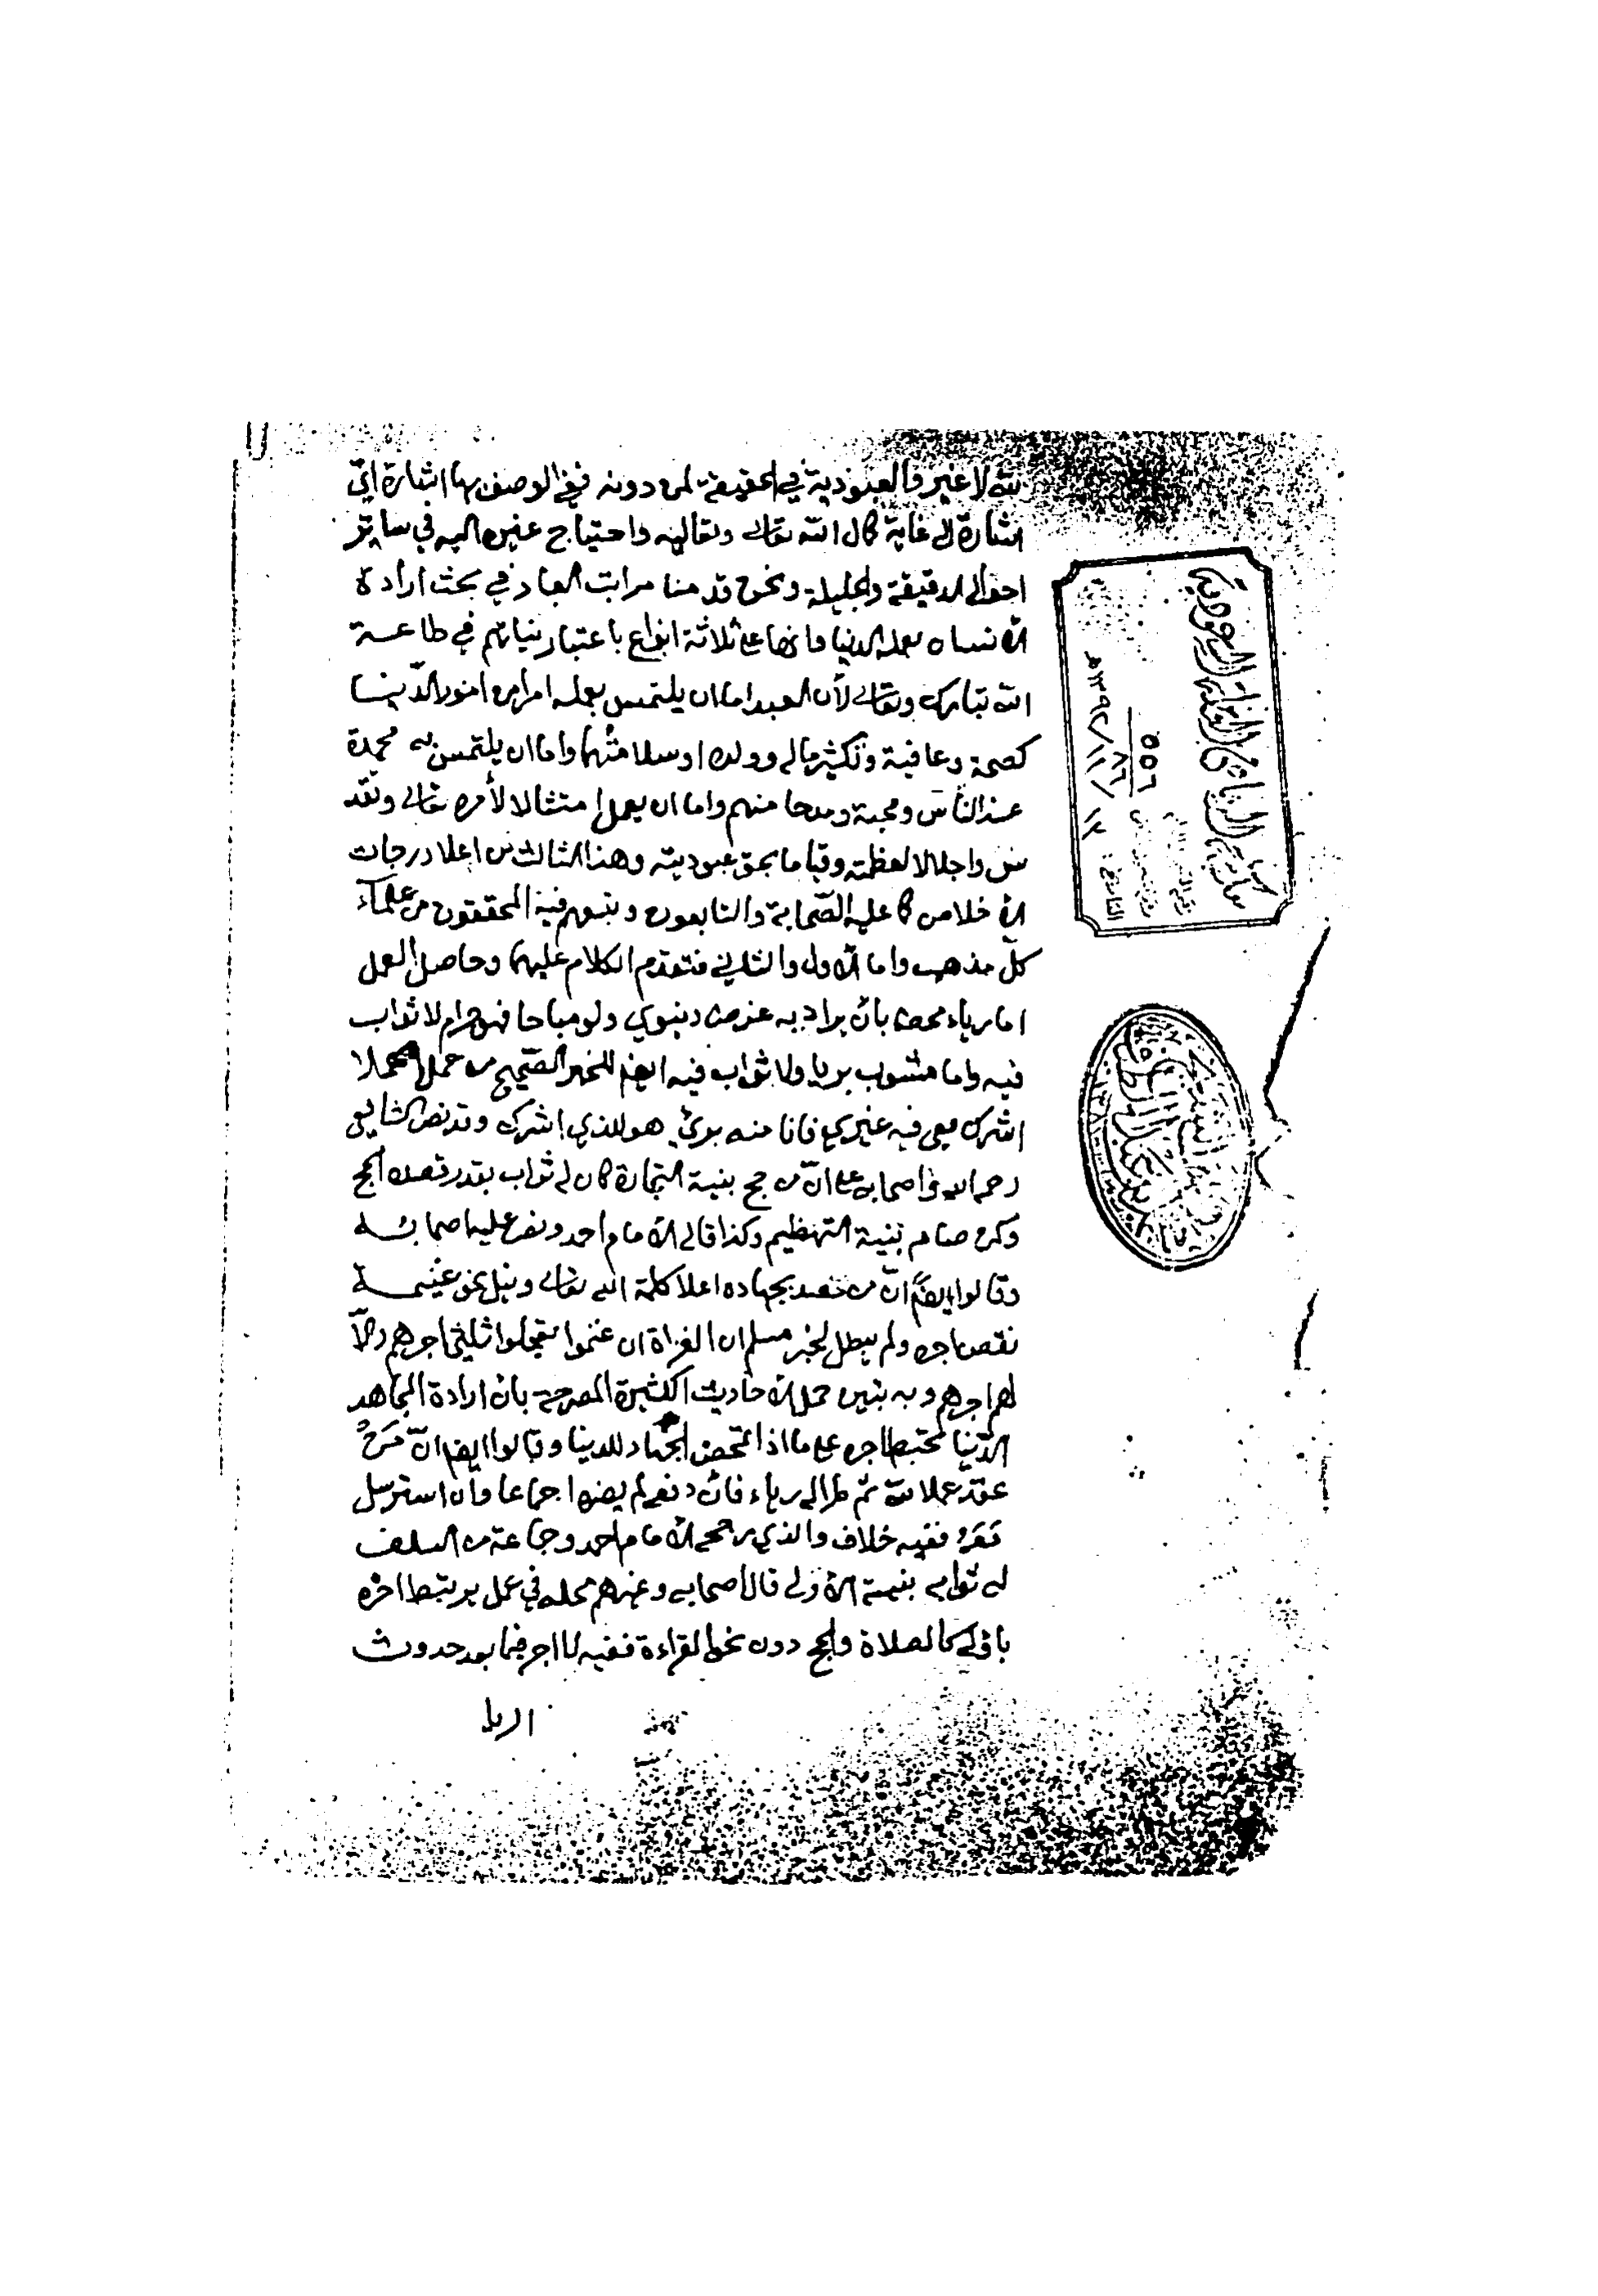 لله لا غير فالعبودية في الحقيقة لمن دونه ففي الوصف بها اشارة اي
اشارة الى غاية كمال الله تعالى وتعاليه واحتياج غيره اليه في ساير
احواله الدقيقة والجليلة ونحن قدمنا مراتب العباد في بحث ارادة
الانسان بعمله الدنيا وانها على ثلاثة انواع باعتبار نياتهم في طاعة
الله تبارك وتعالى لأن العبد اما ان يلتمس بعمله امرا من امور الدنيا
كصحة وعافية وتكثير مال وولده او سلامتهما واما ان يلتمس به محمدة
عند الناس ومحبة ومدحا منهم واما ان يعمل امتثالا لأمره تعالى وتقد
س واجلالا لعظمته وقياما بحق عبوديته وهذا الثالث من اعلا درجات
الاخلاص كما عليه الصحابة والتابعون وتبعهم فيه المحققون من علماء
كل مذهب واما الاول والثاني فتقدم الكلام عليهما وحاصل العمل
اما رياء محض بان يراد به غرض دنيوي ولو مباحا فهو حرام لا ثواب
فيه واما مشوب بريا ولا ثواب فيه ايضا للخبر الصحيح من عمل عملا
اشرك معي فيه غيري فانا منه بريء هو للذي اشرك وقد نص الشافعي
رحمه الله واصحابه على ان من حج بنية التجارة كان له ثواب بقدر قصده الحج
وكمن صام بنية التهظيم وكذا قال الامام احمد ونص عليه اصحابه
وقالوا ايضا ان من قصد بجهاده اعلا كلمة الله تعالى ونيل نحو غنيمة
نقص اجره ولم يبطل لخبر مسلم ان الغزاة ان غنموا تعجلوا ثلثي اجرهم والا
لهم اجرهم وبه تبين حمل الاحاديث الكثيرة المصرحة بان ارادة المجاهد
الدنيا تحبط اجره على ما اذا تمحض الجهاد للدنيا وقالوا ايضا ان من
عقد عملا لله ثم طرا له رياء فان دفعه لم يضر اجماعا وان استرسل
معه ففيه خلاف والذي رجحه الامام احمد وجماعة من السلف
له ثوابه بنيته الاولى قال اصحابه وغيرهم محله في عمل يرتبط اخره
باوله كالصلاة والحج دون نحو القراءة ففيه لا اجر فيما بعد حدوث
الريا
٥٥٦
٨٦
التاريخ: ١٢ / ١١ / ١٣٩٢هـ